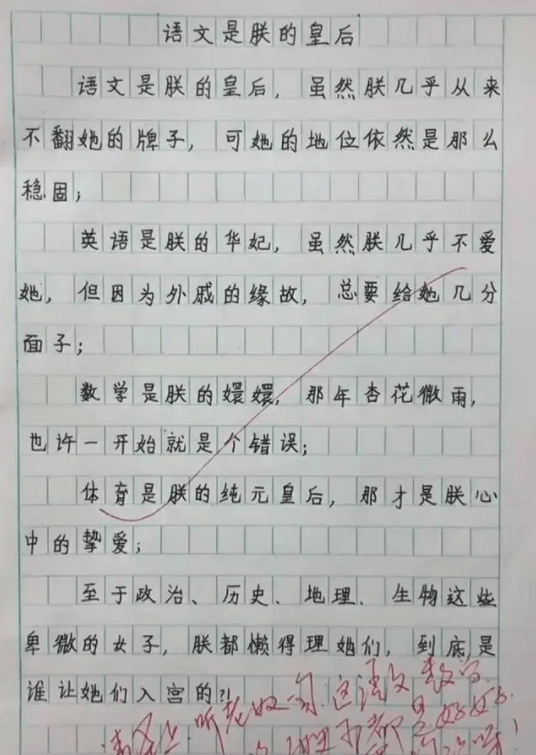 语文是朕的皇后
语文是朕的皇后，虽然朕几乎从来
不翻她的牌子，可她的地位依然是那么
稳固；
英语是朕的华妃，虽然朕几乎不爱
她，但因为外戚的缘故，总要给她几分
面子；
数学是朕的嬛嬛，那年杏花微雨，
也许一开始就是个错误；
体育是朕的纯元皇后，那才是朕心
中的挚爱；
至于政治、历史、地理、生物这些
卑微的女子，朕都懒得理她们，到底是
谁让她们入宫的?!